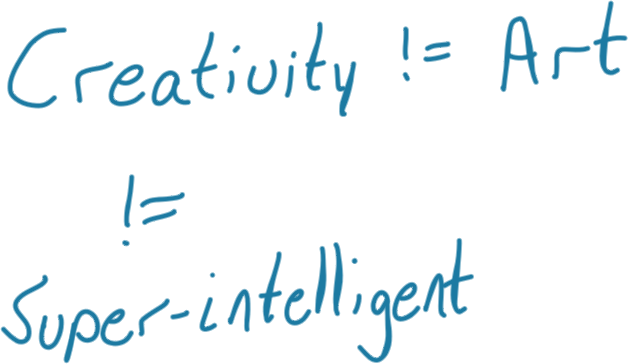 Creativity != Art
!=
Super-intelligent